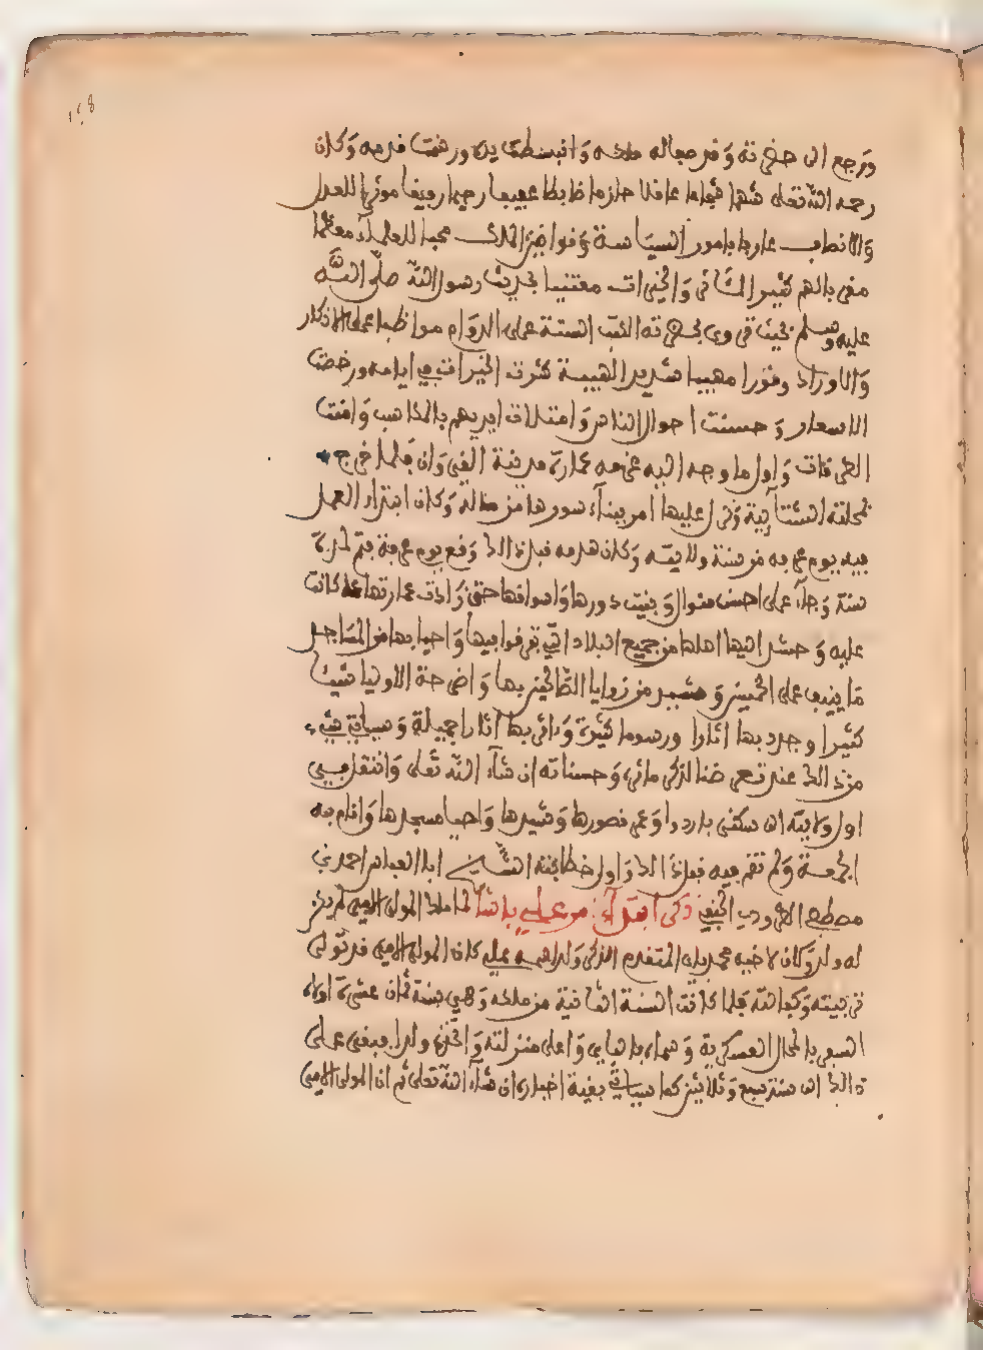 ١٤8
ورجع الى حضرته وقد صفا له ملكه وانبسطت يده ورسخت قدمه وكان
رحمه الله تعلى شهما شجاعا عاقلا حازما ضابطا عفيفا رحيما رفيقا موثرا للعدل
والانصاف عارفا بامور السياسة وقوانين الملك محبا للعلماء معظما
مقربا لهم كثير المآثر والخيرات معتنيا بحديث رسول الله صلى الله
عليه وسلم بحيث تروى بحضرته الكتب الستة على الدوام مواظبا على الاذكار
والاوراد وقورا مهيبا شديد الهيبة كثرت الخيرات في ايامه ورخصت
الاسعار وحسنت احوال الناس وامتلات ايديهم بالمكاسب وامنت
الطرقات واول ما وجه اليه عزمه عمارة مدينة القيروان فلما خرج
بمحلته الشتآئية ونزل عليها امر ببنآء سورها من ماله وكان ابتداء العمل
فيه يوم عرفة من سنة ولايته وكان هدمه قبل ذالك وقع يوم عرفة فتم لمدة
سنة وجآء على احسن منوال وبنيت دورها واسواقها حتى زادت عمارتها عما كانت
عليه وحشر اليها اهلها من جميع البلاد التي تفرقوا فيها واحيا بها من المساجد
ما ينيف على الخمسين وشيد من زوايا الصالحين بها واضرحة الاوليا شيئا
كثيرا وجدد بها اثارا ورسوما كثيرة وابقى بها اثارا جميلة وسياتي شيء
من ذالك عند تعرضنا لذكر مآثره وحسناته ان شآء الله تعلى وانتقل في
اول ولايته الى سكنى باردو وعمر قصورها وشيدها واحيا مسجدها واقام به
الجمعة ولم تقم فيه قبل ذالك واول خطبائه الشيخ ابا العباس احمد بن
مصطفى الحنفي ذكر ابتدآء امر علي باشا لما ملك المولى الامير لم يكن
له ولد وكان لاخيه محمد باي المتقدم الذكر ولد اسمه علي كان المولى الامير قد تولى
تربيته وكفالته فلما كانت السنة الثانية من ملكه وهي سنة ثمان عشرة اولاه
السفر بالمحال العسكرية وسماه باي واعلى منزلته واتخذه ولدا فبقي على
ذالك الى سنة سبع وثلاثين كما سياتي بقية اخباره ان شآء الله تعلى ثم ان المولى الامير